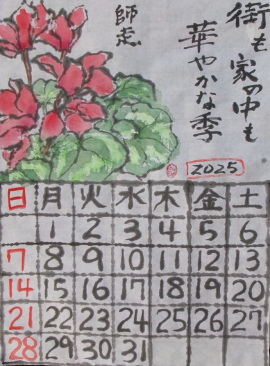 街も家の中も
華やかな季
師走
2025
日 月 火 水 木 金 土
1 2 3 4 5 6
7 8 9 10 11 12 13
14 15 16 17 18 19 20
21 22 23 24 25 26 27
28 29 30 31